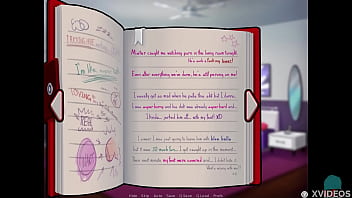 TRYING
I'm the
LOVING
YEAH
Master caught me watching porn in the living room tonight.
He's such a fucking loser!
Even after everything we've done, he's still perving on me!
I usually get so mad when he pulls this shit but I dunno...
I was super horny and his dick was already super hard and...
I kinda... jerked him off... with my feet! XD
I swear I was just going to leave him with blue balls
but it was SO much fun... I got caught up in the moment...
Then next minute my feet were covered and... I didn't hate it.
What is wrong with me?!
Hide Skip Auto Save Q.Save Q.Load Prefs
XVIDEOS